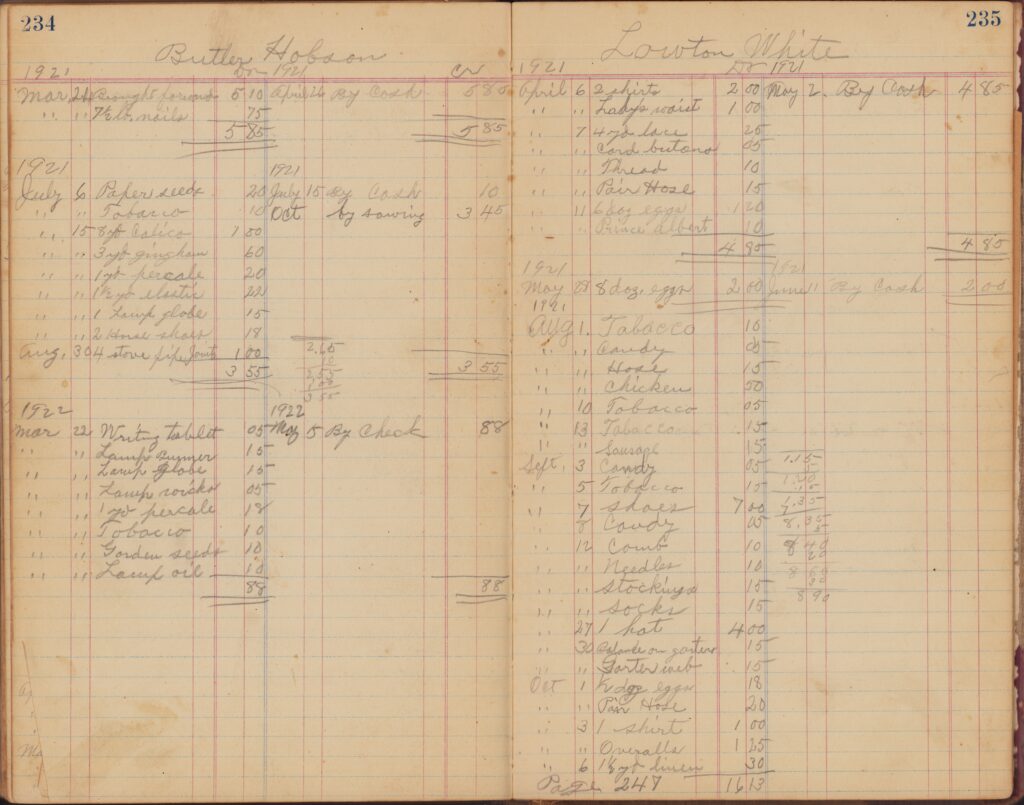 234
Butler Hobson
1921 Dr 1921 Cr
Mar 21 Brought forward 5 10 April 26 By Cash 5 85
" " lb. nails 75
5 85 5 85
1921 1921
July 6 Paper seeds 20 July 15 By Cash 10
" " Tobacco 10 Oct by sowing 3 45
" 15 8 yd Calico 1 00
" " 3 yd gingham 60
" " 1 yd percale 20
" " 1½ yd elastic 22
" " 1 Lamp globe 15
" " 2 Horse shoes 18
Aug. 30 4 stove pipe joints 1 00
3 55 3 55
2.45
10
2 55
1 00
3 55
1922 1922
Mar 22 Writing tablet 05 May 5 By Check 88
" " Lamp burner 15
" " Lamp globe 15
" " Lamp wicks 05
" " 1 yd percale 18
" " Tobacco 10
" " Garden seeds 10
" " Lamp oil 10
88 88
235
Lowton White
1921 Dr 1921
April 6 2 shirts 2 00 May 2 By Cash 4 85
" " Lady's waist 1 00
" 7 4 yd lace 25
" " Card butons 05
" " Thread 10
" " Pair Hose 15
" 11 6 doz eggs 1 20
" " Prince Albert 10
4 85 4 85
1921 1921
May 28 8 doz. eggs 2 00 June 11 By Cash 2 00
1921
Aug 1. Tobacco 10
" " Candy 05
" " Hose 15
" " Chicken 50
" 10 Tobacco 05
" 13 Tobacco 15
" " Sausage 15
Sept. 3 Candy 05 1.15
" 5 Tobacco 15 1.20
" 7 shoes 7 00 1.35
" 8 Candy 05 8.35
" 12 Comb 10 8 40
" " Needles 10 20
" " Stockings 15 8 60
" " Socks 15 8 90
" 27 1 hat 4 00
" 30 Balance on garters 15
" " Garter web 15
Oct 1 ½ doz eggs 18
" " Pair Hose 20
" 3 1 shirt 1 00
" " Overalls 1 25
" 6 1½ yd linen 30
Page 247 16 13